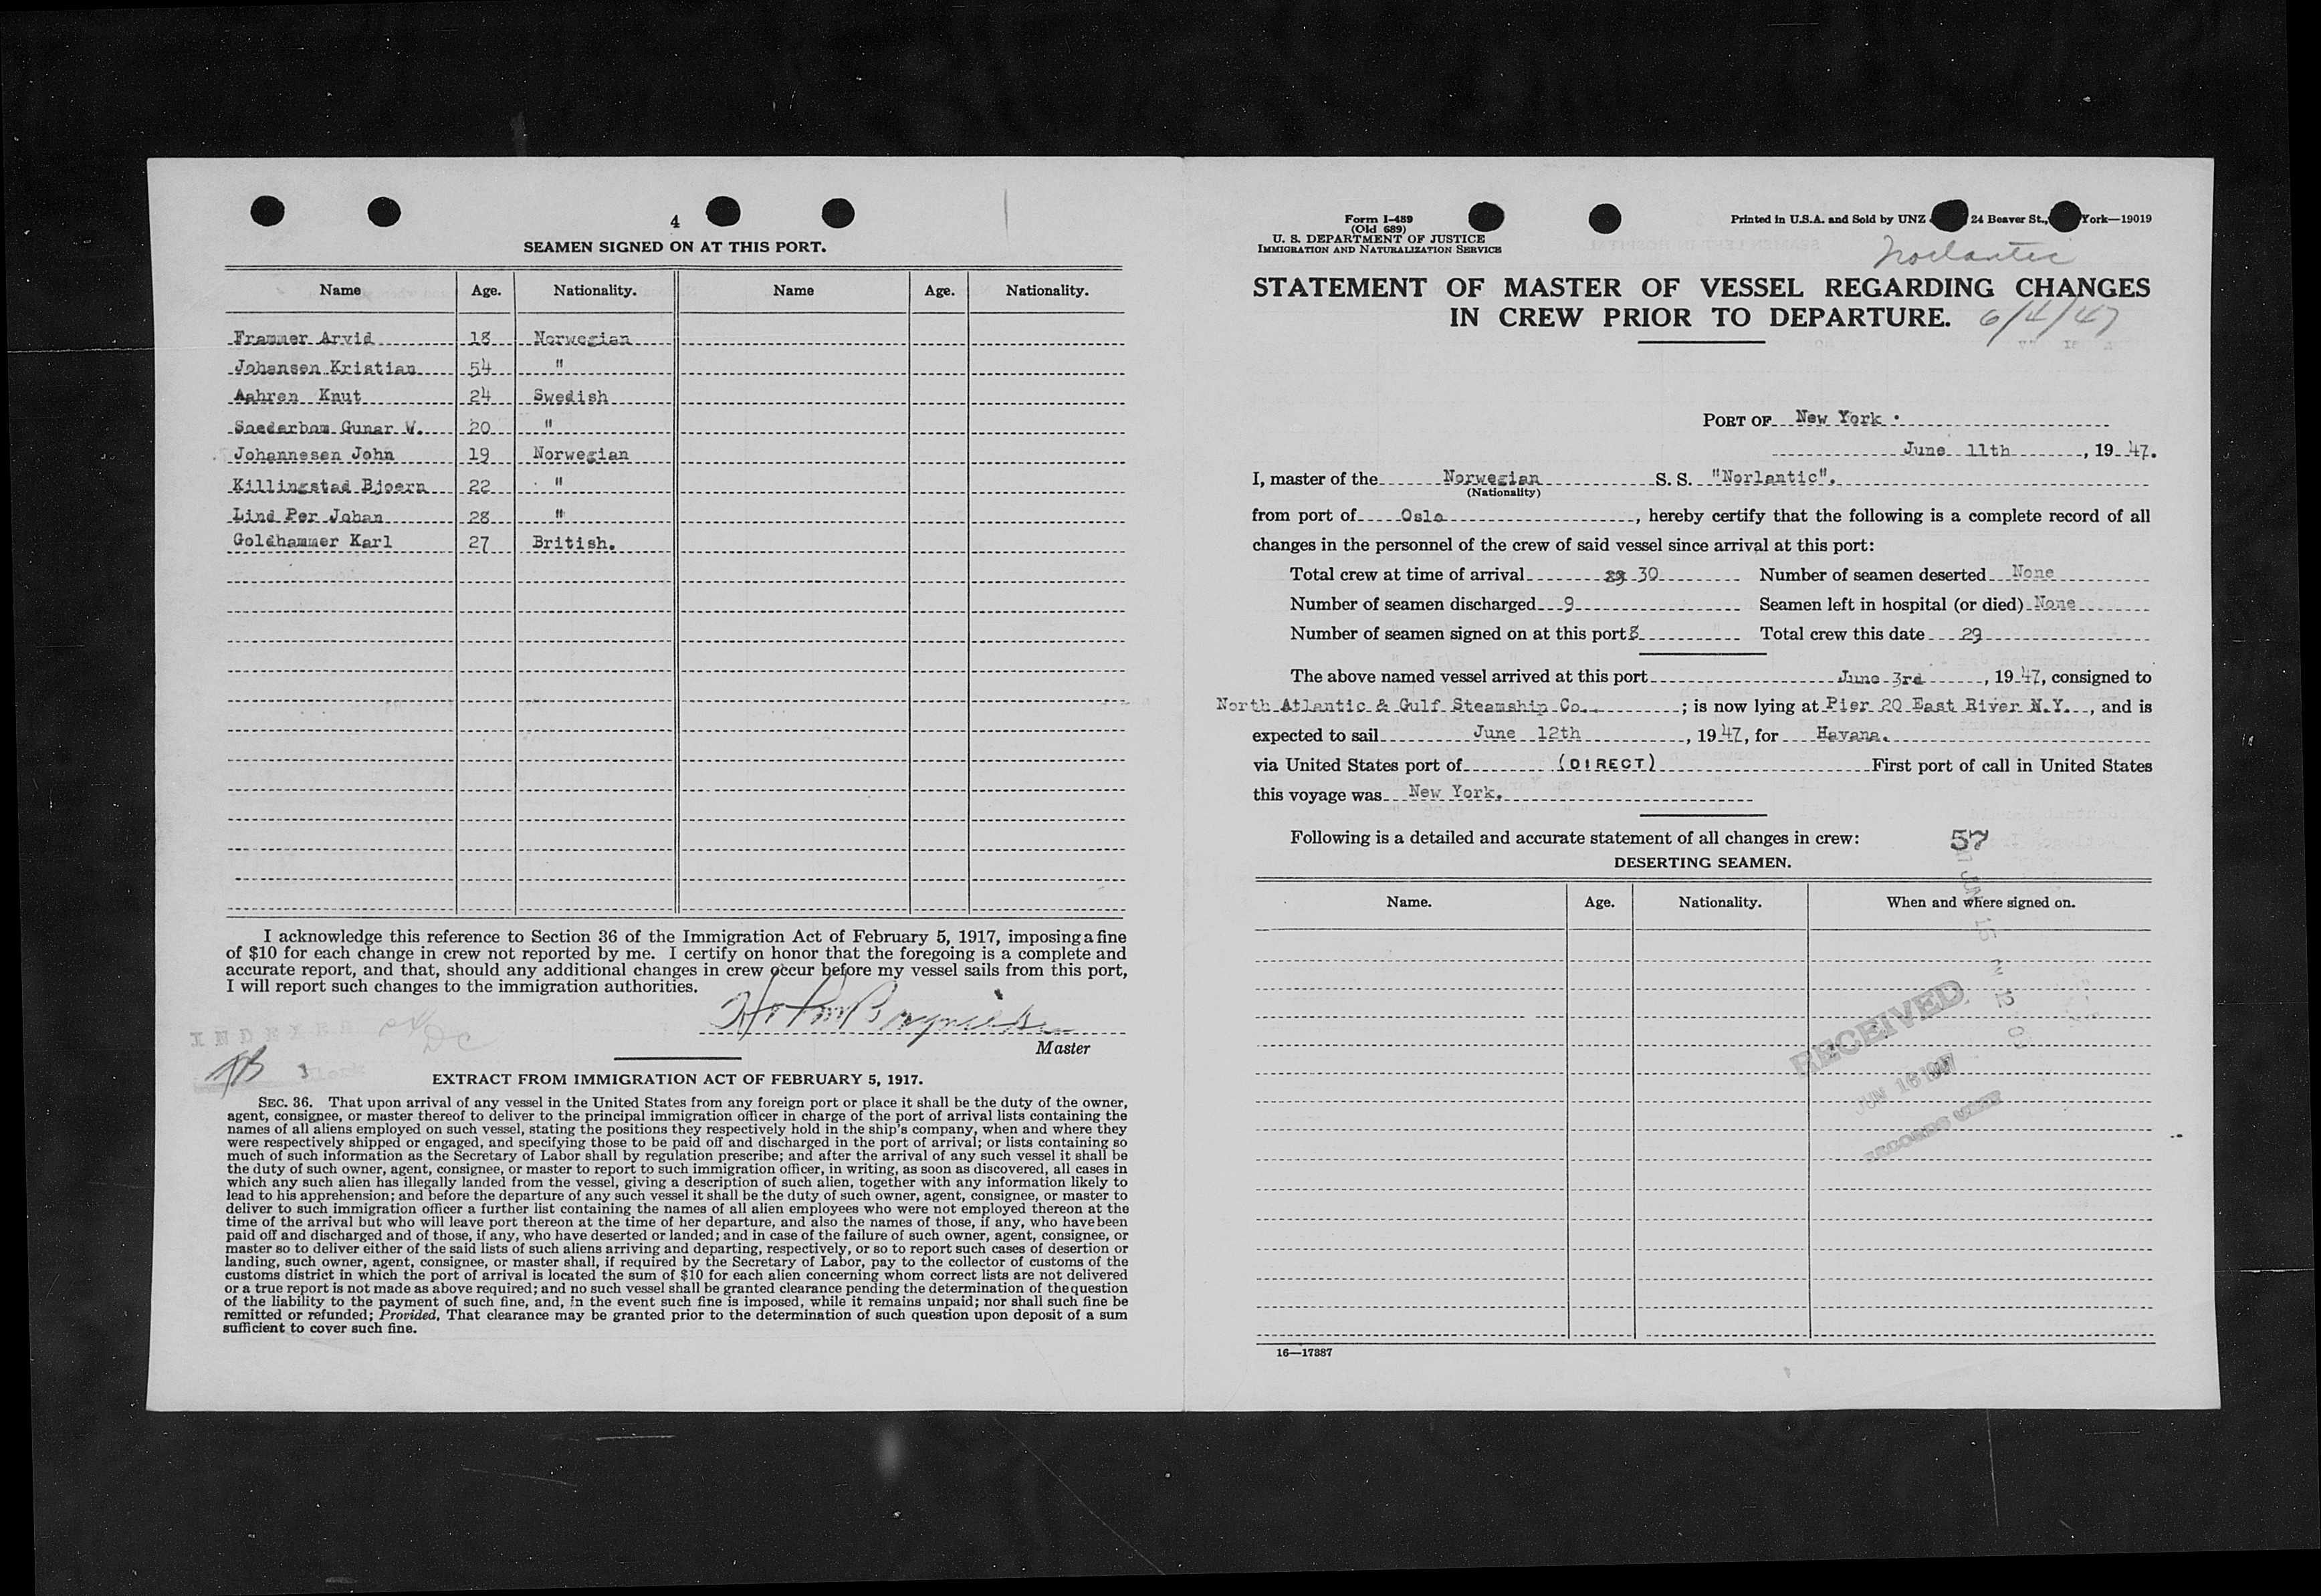 4
SEAMEN SIGNED ON AT THIS PORT.
Name Age. Nationality. Name Age. Nationality.
Frammer Arvid 18 Norwegian
Johansen Kristian 54 "
Aahren Knut 24 Swedish
Soederbom Gunar W. 20 "
Johannesen John 19 Norwegian
Killingstad Bjoern 22 "
Lind Per Johan 28 "
Goldhammer Karl 27 British.
I acknowledge this reference to Section 36 of the Immigration Act of February 5, 1917, imposing a fine
of $10 for each change in crew not reported by me. I certify on honor that the foregoing is a complete and
accurate report, and that, should any additional changes in crew occur before my vessel sails from this port,
I will report such changes to the immigration authorities.
Master
INDEXED
EXTRACT FROM IMMIGRATION ACT OF FEBRUARY 5, 1917.
SEC. 36. That upon arrival of any vessel in the United States from any foreign port or place it shall be the duty of the owner,
agent, consignee, or master thereof to deliver to the principal immigration officer in charge of the port of arrival lists containing the
names of all aliens employed on such vessel, stating the positions they respectively hold in the ship's company, when and where they
were respectively shipped or engaged, and specifying those to be paid off and discharged in the port of arrival; or lists containing so
much of such information as the Secretary of Labor shall by regulation prescribe; and after the arrival of any such vessel it shall be
the duty of such owner, agent, consignee, or master to report to such immigration officer, in writing, as soon as discovered, all cases in
which any such alien has illegally landed from the vessel, giving a description of such alien, together with any information likely to
lead to his apprehension; and before the departure of any such vessel it shall be the duty of such owner, agent, consignee, or master to
deliver to such immigration officer a further list containing the names of all alien employees who were not employed thereon at the
time of the arrival but who will leave port thereon at the time of her departure, and also the names of those, if any, who have been
paid off and discharged and of those, if any, who have deserted or landed; and in case of the failure of such owner, agent, consignee, or
master so to deliver either of the said lists of such aliens arriving and departing, respectively, or so to report such cases of desertion or
landing, such owner, agent, consignee, or master shall, if required by the Secretary of Labor, pay to the collector of customs of the
customs district in which the port of arrival is located the sum of $10 for each alien concerning whom correct lists are not delivered
or a true report is not made as above required; and no such vessel shall be granted clearance pending the determination of the question
of the liability to the payment of such fine, and, in the event such fine is imposed, while it remains unpaid; nor shall such fine be
remitted or refunded; Provided, That clearance may be granted prior to the determination of such question upon deposit of a sum
sufficient to cover such fine.
Form I-489
(Old 689)
U. S. DEPARTMENT OF JUSTICE
IMMIGRATION AND NATURALIZATION SERVICE
Printed in U.S.A. and Sold by UNZ 24 Beaver St., York—19019
Norlantic
STATEMENT OF MASTER OF VESSEL REGARDING CHANGES
IN CREW PRIOR TO DEPARTURE.
6/4/47
PORT OF New York.
June 11th, 1947.
I, master of the Norwegian S. S. "Norlantic".
(Nationality)
from port of Oslo, hereby certify that the following is a complete record of all
changes in the personnel of the crew of said vessel since arrival at this port:
Total crew at time of arrival 30 Number of seamen deserted None
Number of seamen discharged 9 Seamen left in hospital (or died) None
Number of seamen signed on at this port 8 Total crew this date 29
The above named vessel arrived at this port June 3rd, 1947, consigned to
North Atlantic & Gulf Steamship Co.; is now lying at Pier 20 East River N.Y., and is
expected to sail June 12th, 1947, for Havana.
via United States port of (DIRECT) First port of call in United States
this voyage was New York.
Following is a detailed and accurate statement of all changes in crew: 57
DESERTING SEAMEN.
Name. Age. Nationality. When and where signed on.
RECEIVED
JUN 16 1947
16—17387